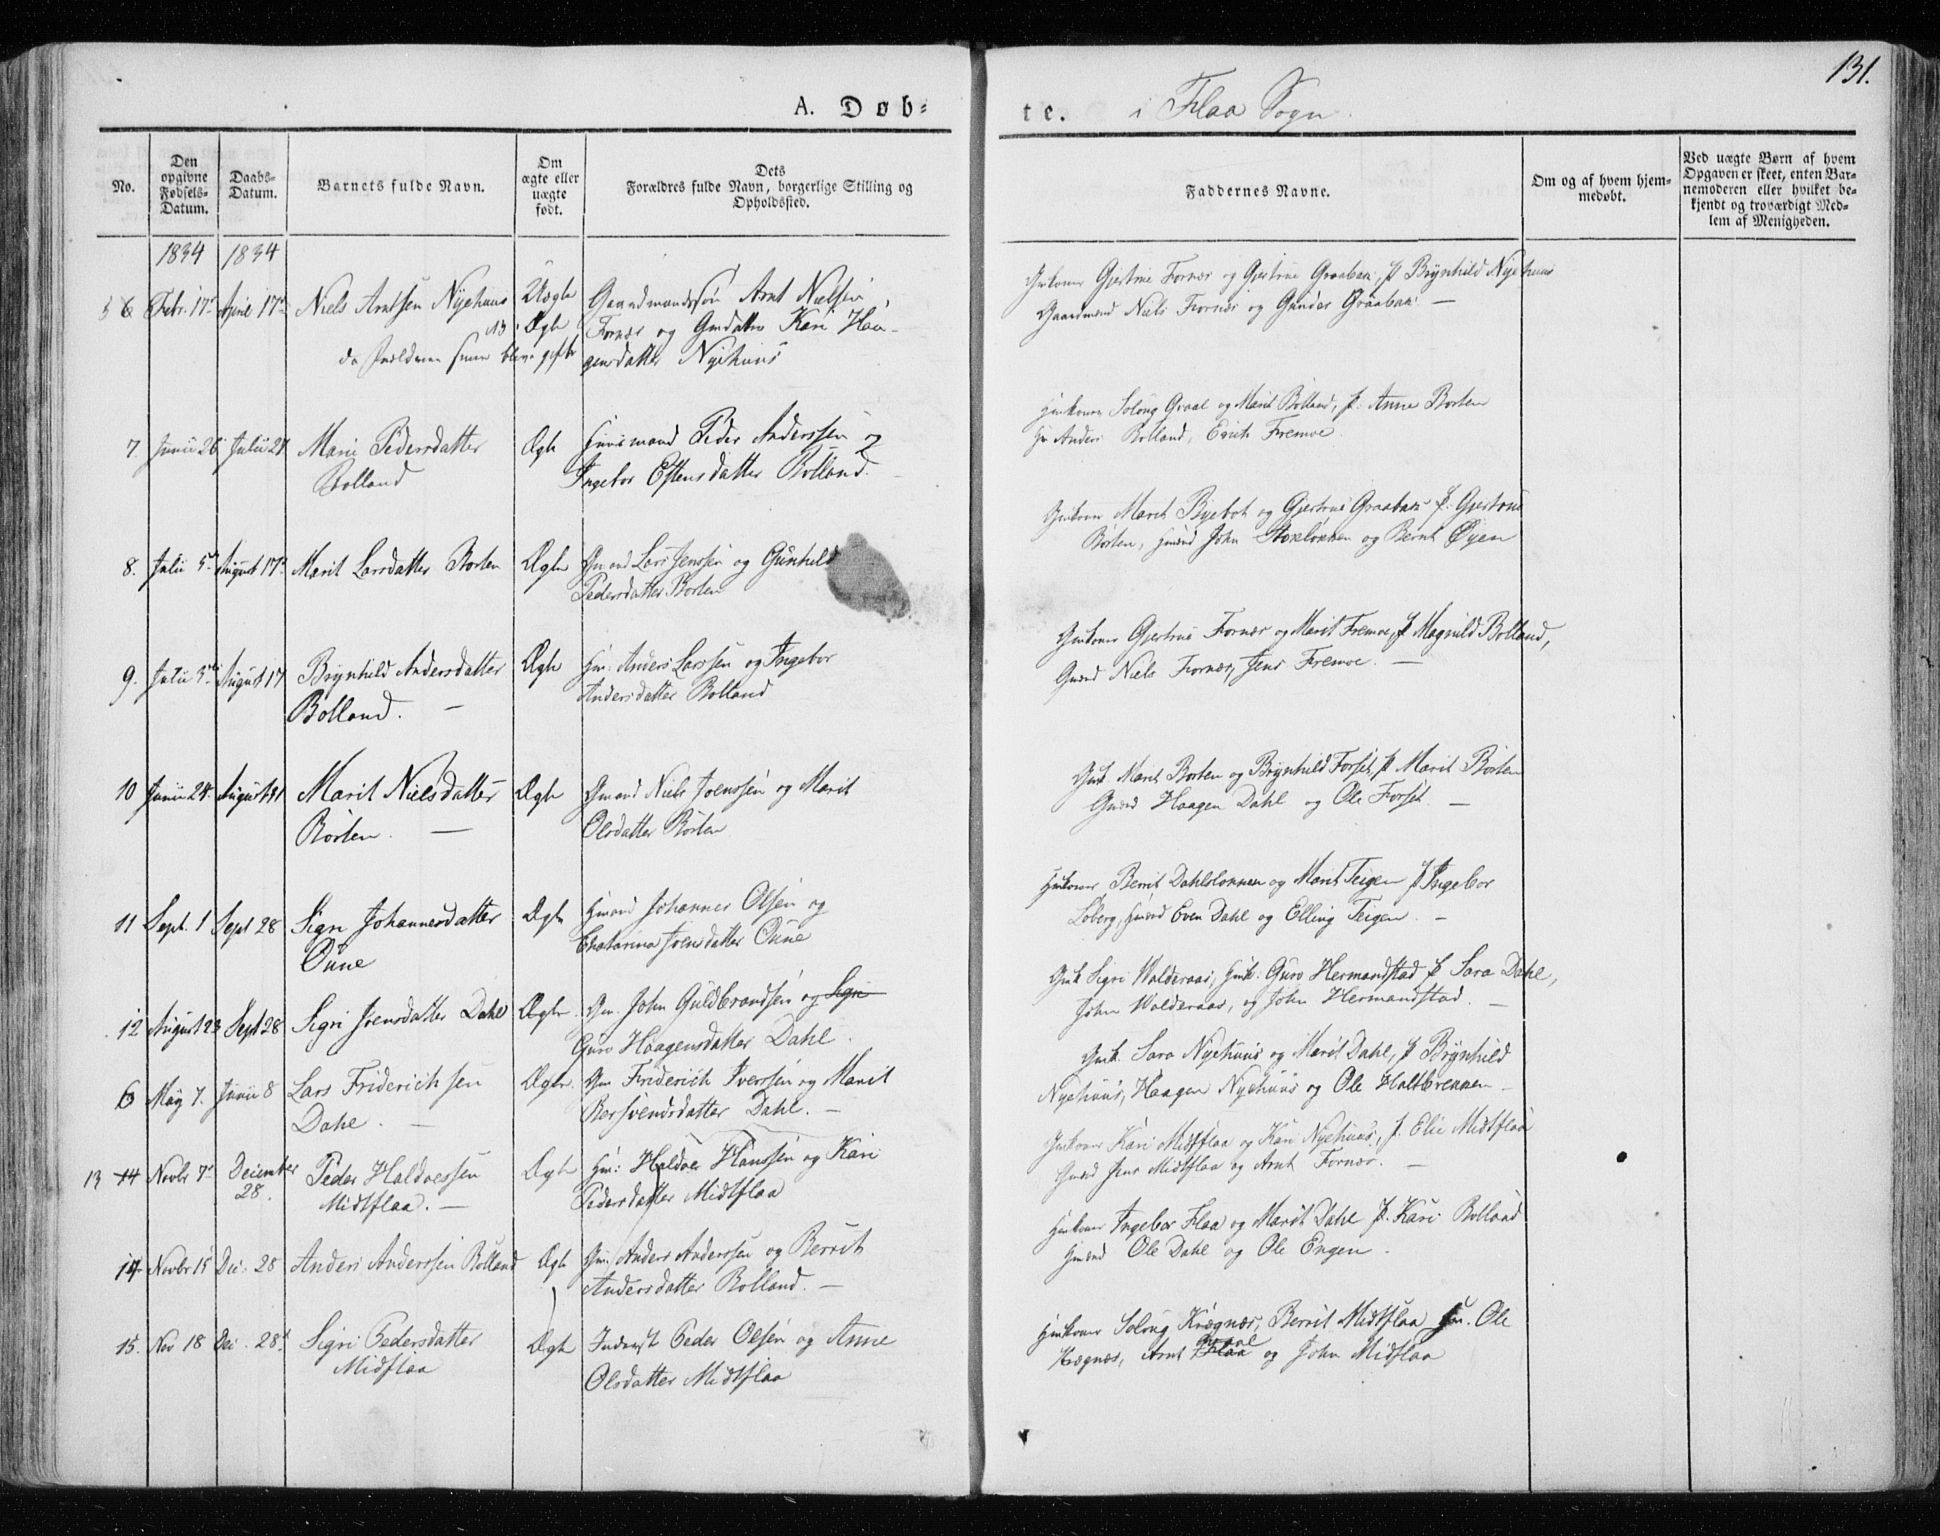 131.
A. Døb-
te. i Flaa Sogn.
No.
Den opgivne Fødsels-Datum.
Daabs-Datum.
Barnets fulde Navn.
Om ægte eller uægte født.
Dets Forældres fulde Navn, borgerlige Stilling og Opholdssted.
Faddernes Navne.
Om og af hvem hjem-
medøbt.
Ved uægte Børn af hvem
Opgaven er skeet, enten Bar-
nemoderen eller hvilket be-
kjendt og troværdigt Med-
lem af Menigheden.
1834 1834
6 Febr. 17 April 17 Niels Arntsen Nyehuus Uægte Gaardmandssøn Arnt Nielsen
Ægte Fornæs og Kari Haa-
blev gifte gensdatter Nyehuus
Gjertrue Fornæs og Gjertrue Graabak, P Brynhild Nyehuus
Gaardmænd Niels Fornæs og Gunder Graabak. —
7. Junii 26 Julii 27 Marie Pedersdatter Ægte Huusmand Peder Anderssen og
Bolland Ingebor Estensdatter Bolland.
Solong Graal og Marit Bolland, P. Anne Borten
Anders Bolland, Erich Fremoe.
8. Julii 5 August 17 Marit Larsdatter Borten Ægte Gmand Lars Jenssen og Gunhild
Pedersdatter Borten
Marit Byebot og Gjertrue Graabak P. Gjertrue
Borten, John og Bernt Øyen
9. Julii 5 August 17 Brynhild Andersdatter Ægte Hm: Anders Larssen og Ingebor
Bolland. — Andersdatter Bolland
Gjertrue Fornæs og Marit Fremoe, P Magnild Bolland,
Gmænd Niels Fornæs, Jens Fremoe. —
10 Junii 24 August 31 Marit Nielsdatter Ægte Gmand Niels Joenssen og Marit
Borten. — Olsdatter Borten
Gmk Marit Borten og Brynhild Forset, P Marit Borten
Gmænd Haagen Dahl og Ole Forset. —
11 Sept. 1 Sept 28 Sigri Johannesdatter Ægte Hmand Johannes Olsen og
Øune Chatarina Joensdatter Øune
Berrit Dahlsløkken og Marit Teigen P Ingebor
Loberg, Hmænd Even Dahl og Elling Teigen. —
12 August 23 Sept 28 Sigri Joensdatter Dahl Ægte Gm. John Guldbrandsen og Sigri
Guro Haagensdatter Dahl.
Gmk Sigri Walderaas, Guro Hermandstad P Sara Dahl,
John Walderaas, og John Hermandstad. —
6 May 7. Junii 8 Lars Friderichsen Ægte Gm Friderich Iverssen og Marit
Dahl. — Bersvendsdatter Dahl. —
Gmk. Sara Nyehuus og Marit Dahl, P Brynhild
Nyehuus, Haagen Nyehuus og Ole Holtbrekken —
13 14 Novbr 7 December Peder Haldoessen Ægte Hm: Haldoe Hanssen og Kari
28. Midtflaa. — Pedersdatter Midtflaa
Kari Midtflaa og Kari Nyehuus, P. Elie Midtflaa
Gmænd Jens Midtflaa og Arnt Fornæs. —
14 Novbr 15 Dec: 28 Anders Anderssen Bolland Ægte Gm: Anders Anderssen og Berrit
Andersdatter Bolland. —
Ingebor Flaa og Marit Dahl P. Kari Bolland
Hmænd Ole Dahl og Ole Engen.
15. Nov 18 Dec: 28 Sigri Pedersdatter Ægte Inderst Peder Olsen og Anne
Midflaa Olsdatter Midtflaa
Solong Krægnæs, Berrit Midtflaa Hm. Ole
Krægnæs, Arnt Flaa Graal og John Midflaa